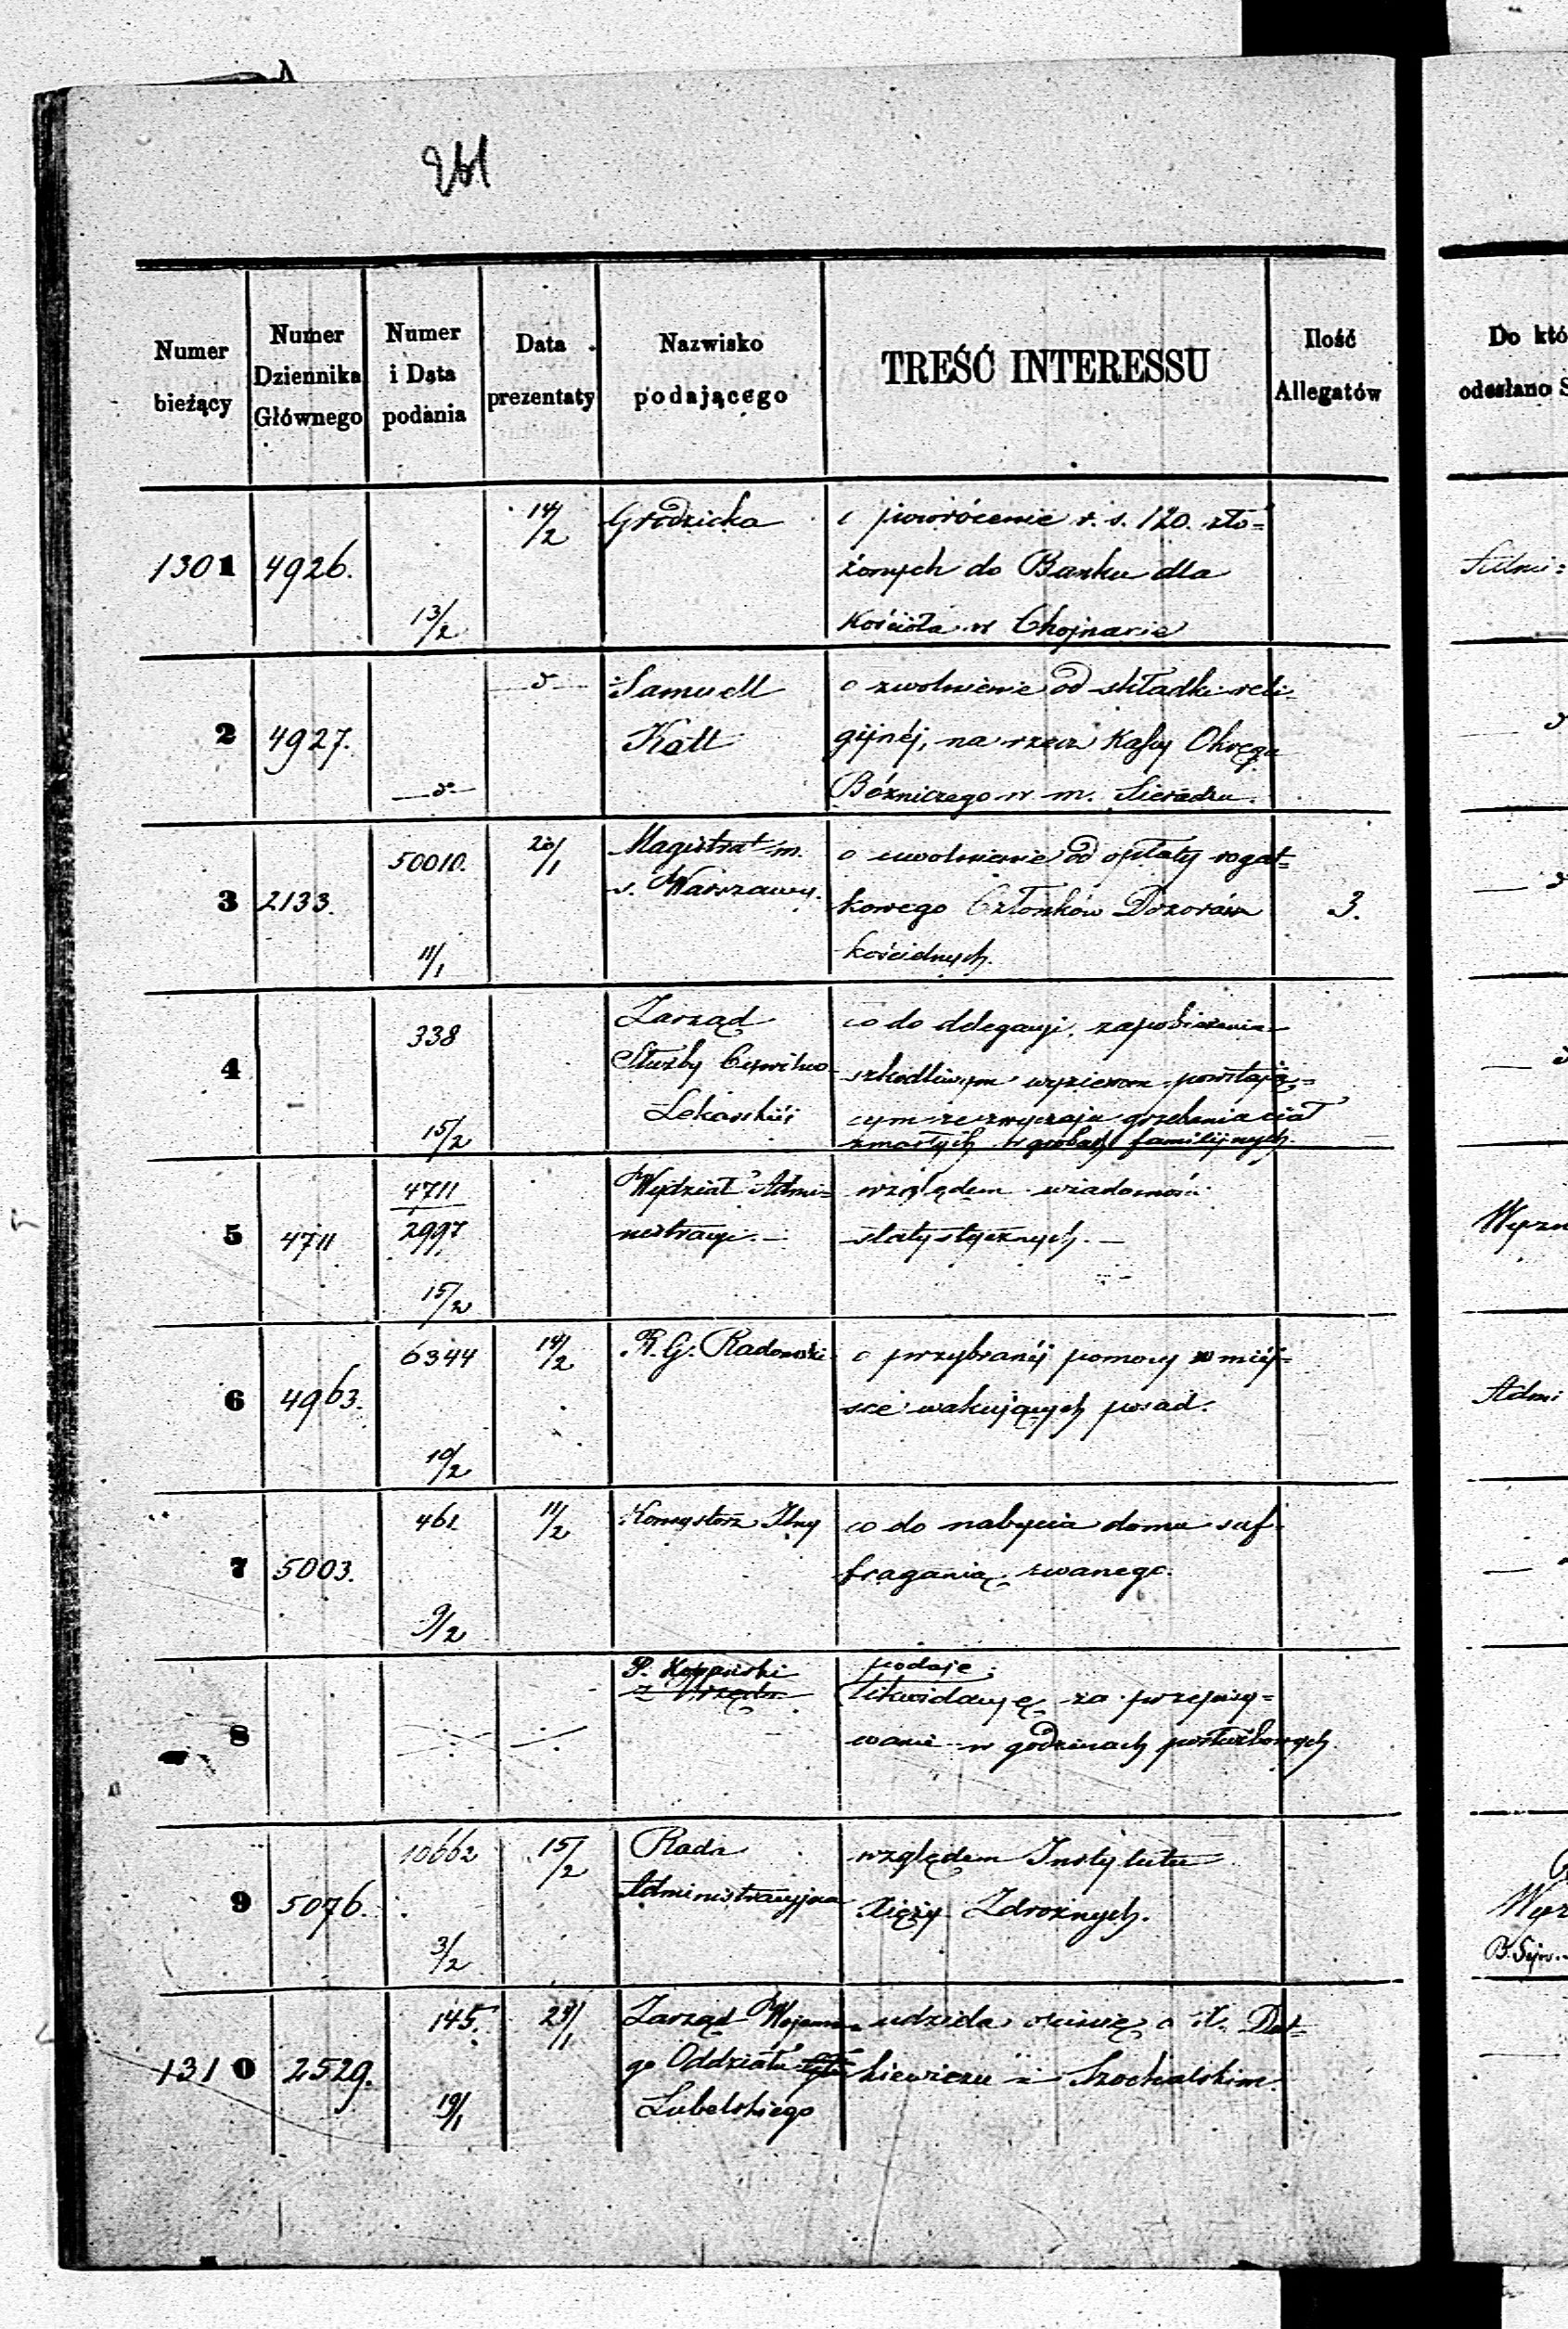 261
Numer bieżący
Numer Dziennika Głównego
Numer i Data podania
Data prezentaty
Nazwisko podającego
TREŚĆ INTERESSU
Ilość Allegatów
Do któ
odesłano S
1301 4926. 13/2 14/2 Grodzicka
o powrócenie r. s. 120. zło=
żonych do Banku dla
Kościoła w Chojnacie
Admi=
2 4927. d° d° Samuell
Kott
o uwolnienie od składki reli-
gijnéj, na rzecz Kassy Okręgu
Bóżniczego w m. Sieradzu.
3 2133. 50010. 11/1 20/1 Magistrat m.
s. Warszawy.
o uwolnienie od opłaty rogat-
kowego Członków Dozorów
kościelnych.
3.
4 338 15/2 Zarząd
Służby Cywilno-
Lekarskiéj
co do delegacyi zapobieżenia
szkodliwym wyziewom powstają=
cym ze zwyczaju grzebania ciał
zmarłych w grobach familijnych.
5 4711 4711
2997 15/2 Wydział Admi=
nistracyi.—
względem wiadomości
statystycznych.—
Wyzn
6 4963. 6344 10/2 14/2 R. G. Radomski
o przybranéj pomocy w miéj=
sce wakujących posad.
Admi
7 5003. 461 9/2 11/2 Konsystorz
co do nabycia domu suf-
fraganią zwanego.
8 P.
podaje
likwidacyę za przepisy=
wanie w godzinach posłużbowych
9 5076. 10662 3/2 15/2 Rada
Administracyjna
względem Instytutu
Xięży Zdrożnych.
Wyz
1310 2529. 145. 19/1 24/1 Zarząd Wojenne=
go Oddziału
Lubelskiego
udziela opinię o X. Dat-
kiewiczu i Szochalskim.